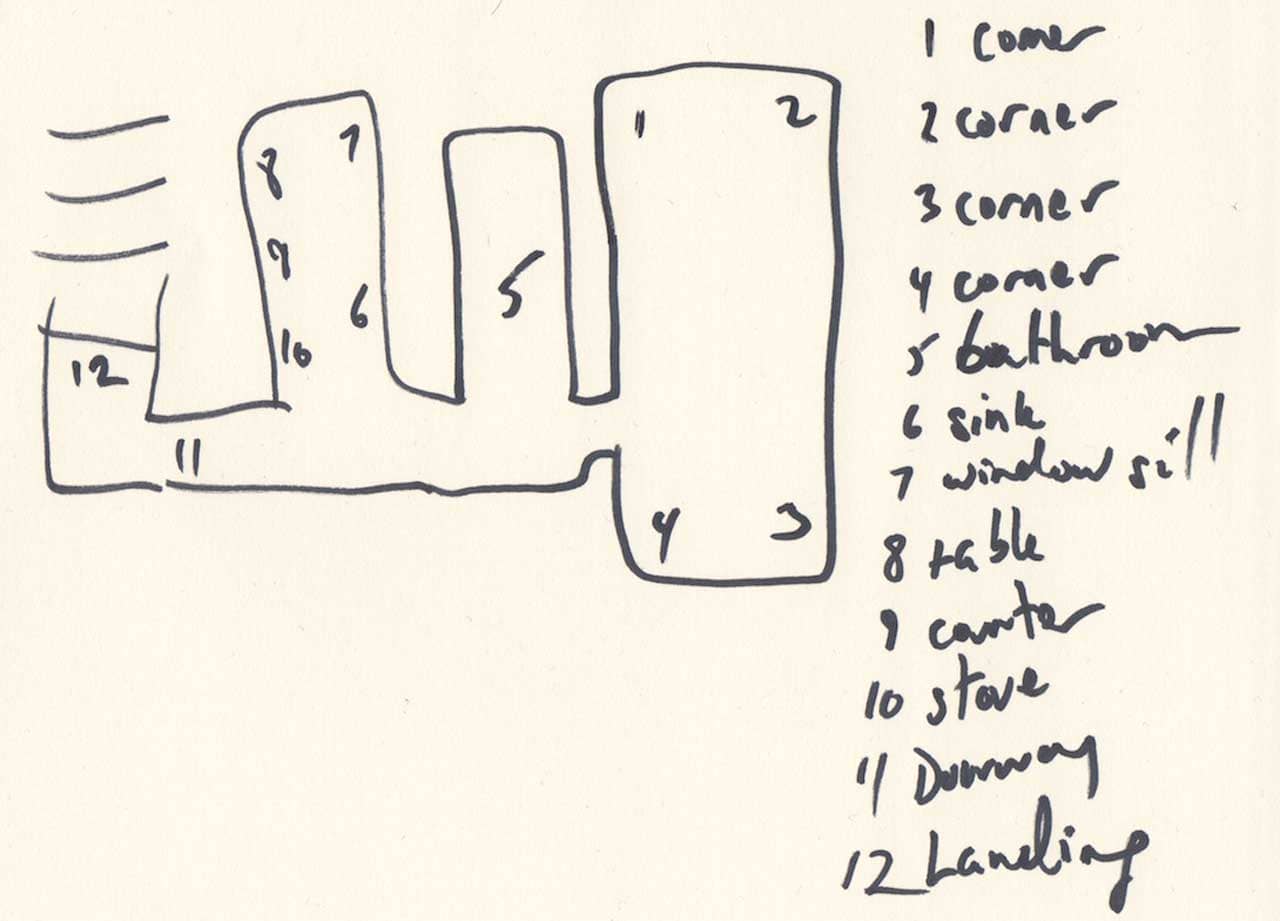 1 corner
2 corner
3 corner
4 corner
5 bathroom
6 sink
7 window sill
8 table
9 counter
10 stove
11 Doorway
12 Landing
1 2
8 7
9
5
6
10
12
11
4 3